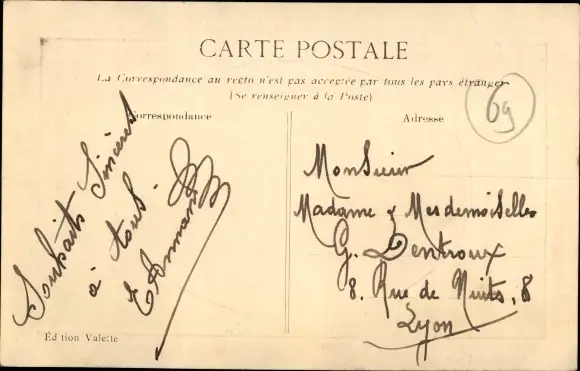 CARTE POSTALE
La Correspondance au recto n'est pas acceptée par tous les pays étrangers
(Se renseigner à la Poste)
Correspondance
Adresse
69
Souhaits Sincères
à tous
Monsieur
Madame & Mesdemoiselles
G. Dentroux
8. Rue de Nuits, 8
Lyon
Ed tion Valette